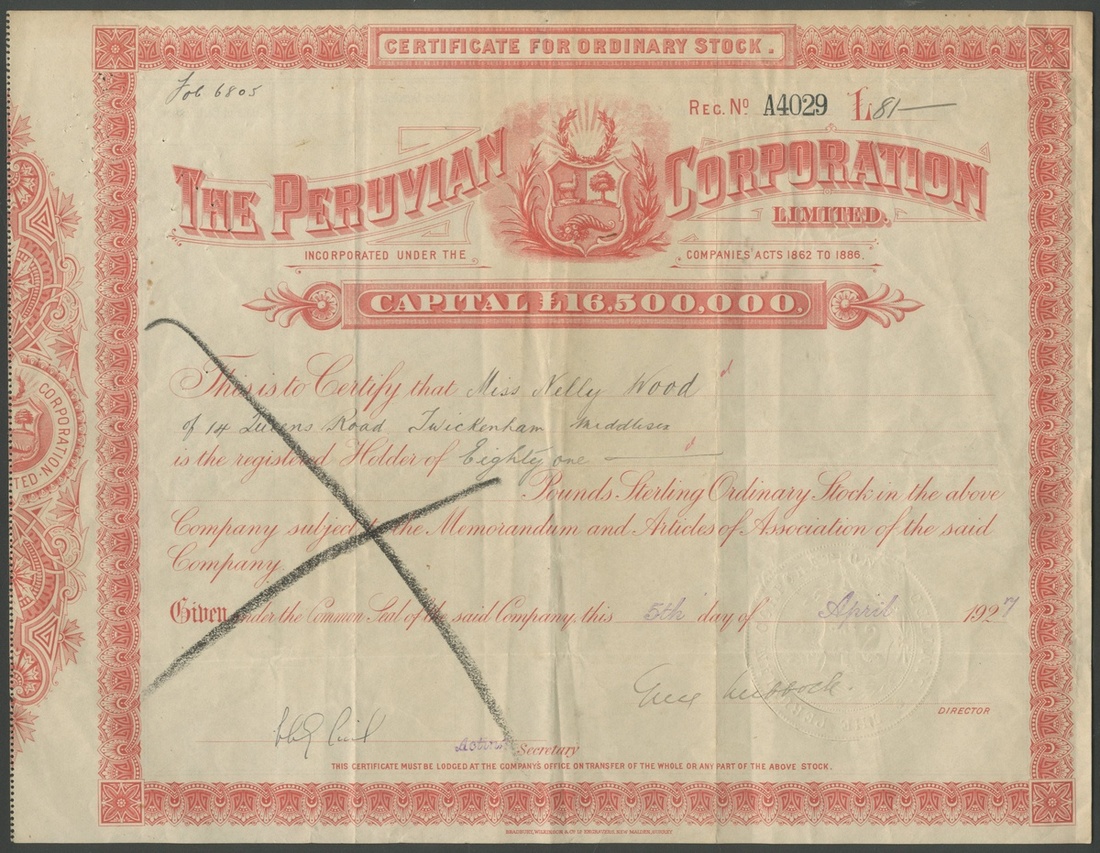 CERTIFICATE FOR ORDINARY STOCK.
Fol 6805
REG. No A4029 £81—
THE PERUVIAN CORPORATION
LIMITED.
INCORPORATED UNDER THE COMPANIES ACTS 1862 TO 1886.
CAPITAL £16,500,000.
This is to Certify that Miss Nelly Wood
of 14 Queens Road Twickenham Middlesex
is the registered Holder of Eighty one
Pounds Sterling Ordinary Stock in the above
Company subject to the Memorandum and Articles of Association of the said
Company.
Given under the Common Seal of the said Company, this 5th day of April 1927
DIRECTOR
Acting Secretary
THIS CERTIFICATE MUST BE LODGED AT THE COMPANY'S OFFICE ON TRANSFER OF THE WHOLE OR ANY PART OF THE ABOVE STOCK.
BRADBURY, WILKINSON & Co Ld ENGRAVERS, NEW MALDEN, SURREY
CORPORATION